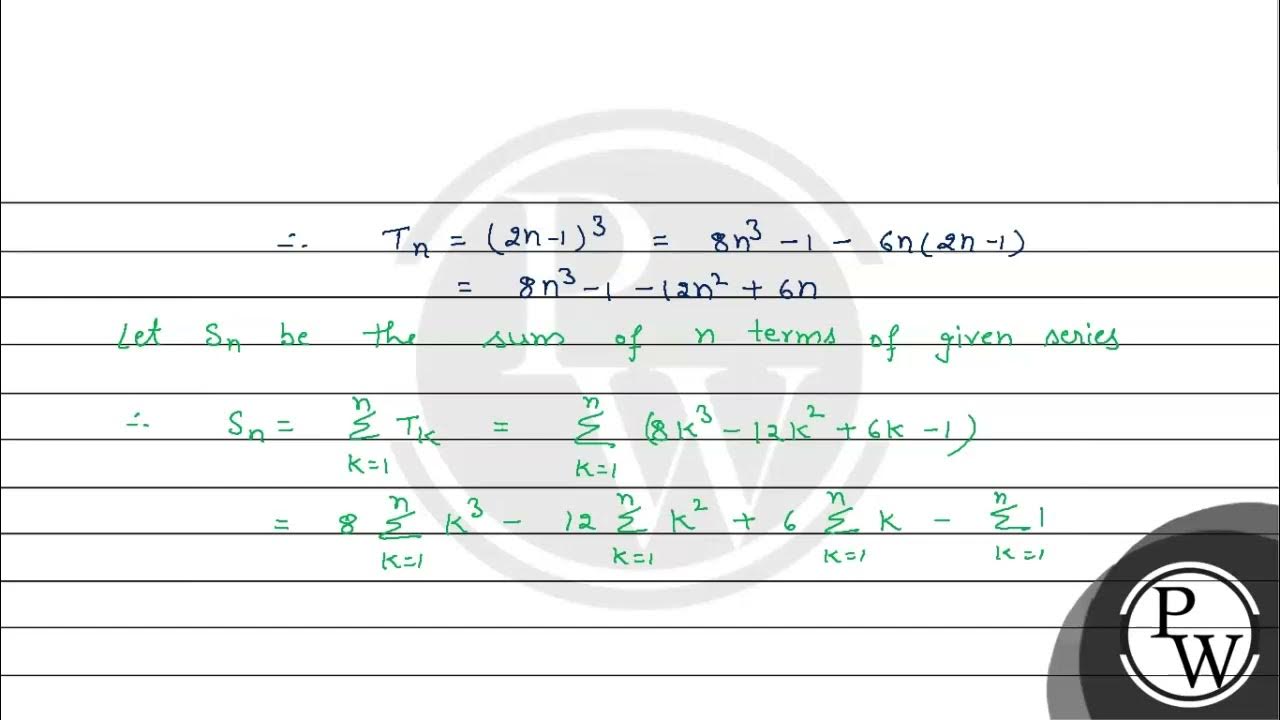 ∴ Tn = (2n-1)³ = 8n³ - 1 - 6n(2n-1)
= 8n³ - 1 - 12n² + 6n
Let Sn be the sum of n terms of given series
∴ Sn = Σ(k=1 to n) Tk = Σ(k=1 to n) (8k³ - 12k² + 6k - 1)
= 8 Σ(k=1 to n) k³ - 12 Σ(k=1 to n) k² + 6 Σ(k=1 to n) k - Σ(k=1 to n) 1
PW
PW